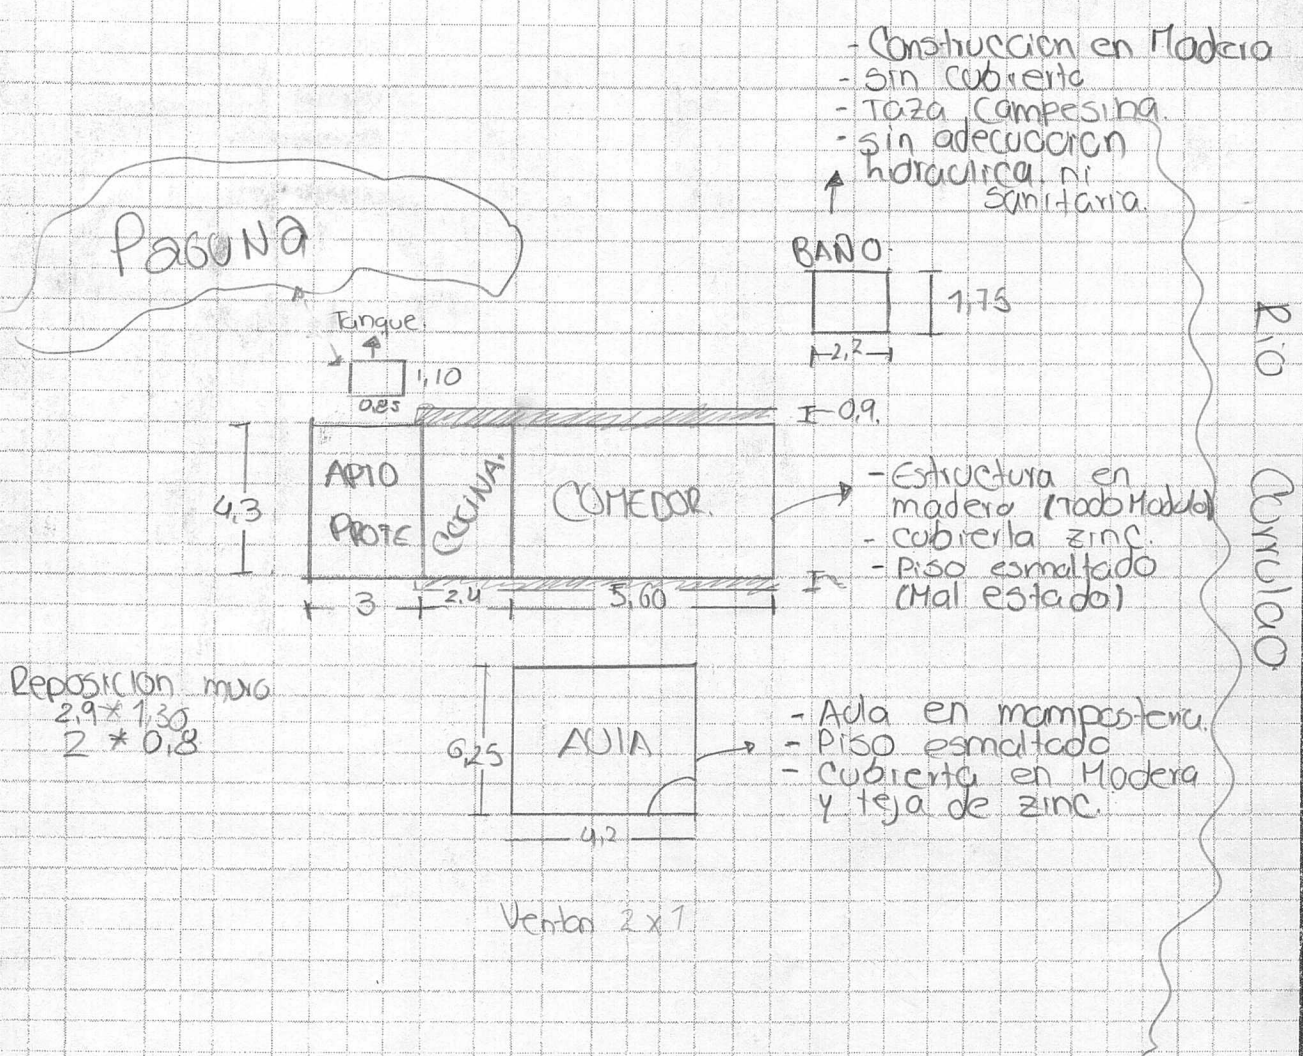 - Construccion en Madera
- sin cubierta
- Taza Campesina.
- sin adecuacion
hidraulica ni
sanitaria.
Laguna
BAÑO.
1,75
2,2
Tanque.
1,10
0,85
0,9.
4,3
APTO
PROFE
COCINA.
COMEDOR.
- Estructura en
madera (Todo Modulo)
- cubierta zinc.
- Piso esmaltado
(Mal estado)
3
2.4
5,60
Rio Curvulao
Reposicion muro
2,9 * 1,30
2 * 0,8
6,25
AUlA
4,2
- Aula en mamposteria.
- Piso esmaltado
- Cubierta en Madera
y teja de zinc.
Ventan 2 x 1